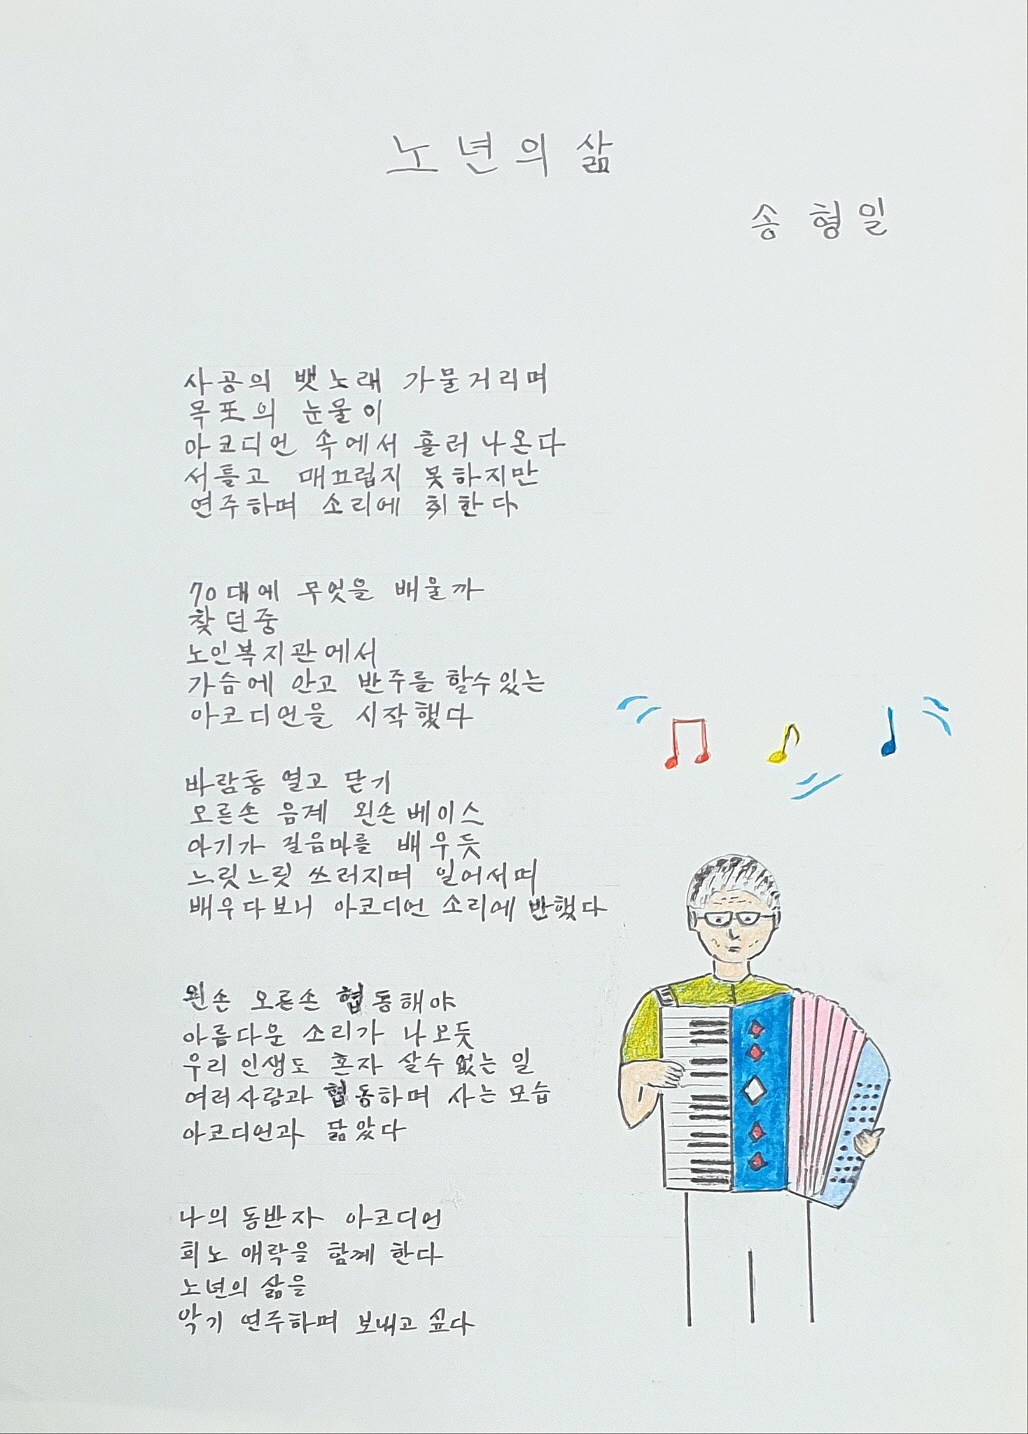 노년의 삶
송 형일
사공의 뱃노래 가물거리며
목포의 눈물이
아코디언 속에서 흘러 나온다
서툴고 매끄럽지 못하지만
연주하며 소리에 취한다
70대에 무엇을 배울까
찾던중
노인복지관에서
가슴에 안고 반주를 할수있는
아코디언을 시작했다
바람통 열고 닫기
오른손 음계 왼손 베이스
아기가 걸음마를 배우듯
느릿느릿 쓰러지며 일어서며
배우다보니 아코디언 소리에 반했다
왼손 오른손 협동해야
아름다운 소리가 나오듯
우리 인생도 혼자 살수 없는 일
여러사람과 협동하며 사는 모습
아코디언과 닮았다
나의 동반자 아코디언
희노 애락을 함께 한다
노년의 삶을
악기 연주하며 보내고 싶다